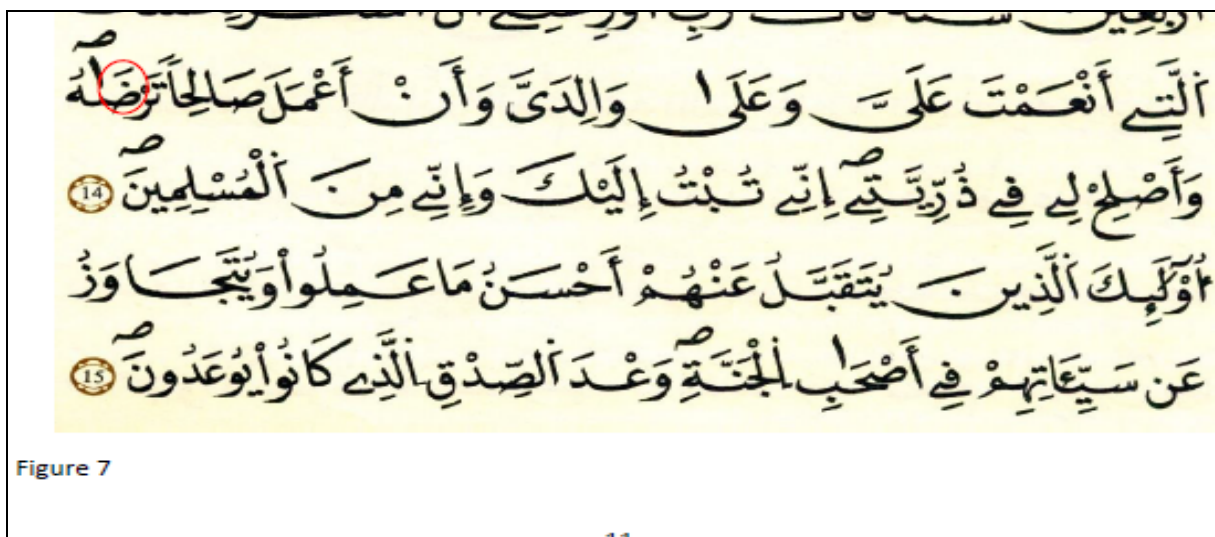 اَلَّتِے أَنْعَمْتَ عَلَىَّ وَعَلَىٰ وَالِدَىَّ وَأَنْ أَعْمَلَ صَالِحاً تَرْضَىٰهُ صه
وَأَصْلِحْ لِے فِے ذُرِّيَّتِے صه إِنِّے تُبْتُ إِلَيْكَ وَإِنِّے مِنَ اَلْمُسْلِمِينَ صه 14
أُوْلَٰٓئِكَ اَلَّذِينَ يُتَقَبَّلُ عَنْهُمْ أَحْسَنُ مَا عَمِلُواْ وَيُتَجَاوَزُ
عَن سَيِّـَٔاتِهِمْ فِے أَصْحَٰبِ اِلْجَنَّةِ صه وَعْدَ اَلصِّدْقِ اِلَّذِے كَانُواْ يُوعَدُونَ صه 15
Figure 7